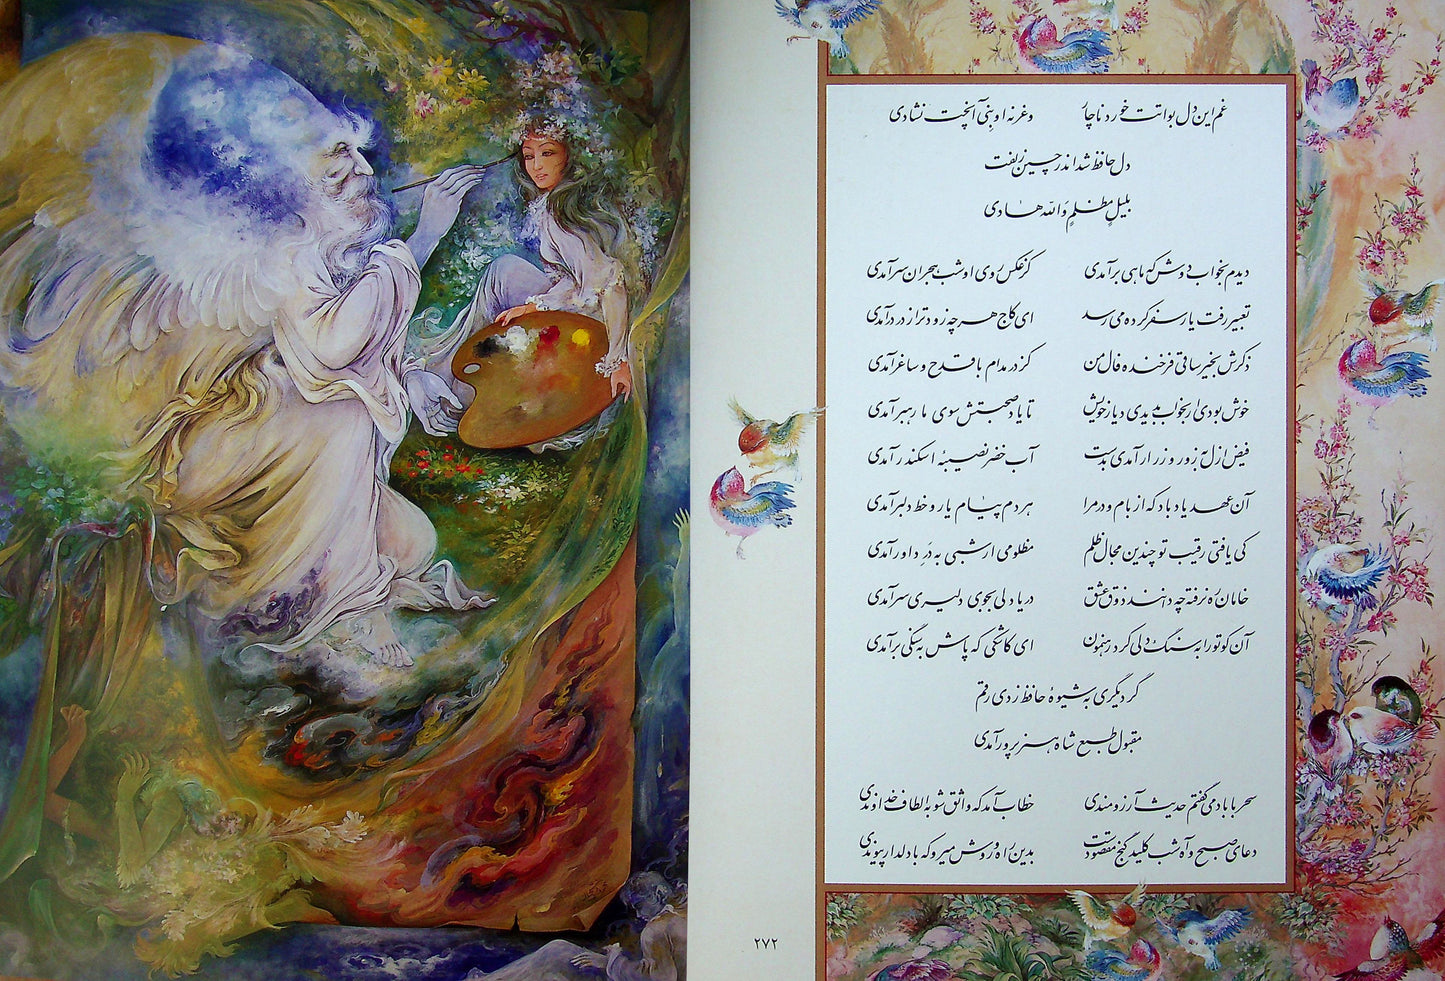 غم این دل بواتت خورد ناچار وغرنه او بنی آنچت نشادی
دل حافظ شد اندر چین زلفت
بلیل مظلم والله هادی
دیدم بخواب دوش که ماهی برآمدی کز عکس روی او شب هجران سرآمدی
تعبیر رفت یار سفر کرده می رسد ای کاج هر چه زودتر از در درآمدی
ذکرش بخیر ساقی فرخنده فال من کز در مدام با قدح و ساغر آمدی
خوش بودی ار بخواب بدیدی دیار خویش تا یاد صحبتش سوی ما رهبر آمدی
فیض ازل به زور و زر ار آمدی بدست آب خضر نصیبهٔ اسکندر آمدی
آن عهد یاد باد که از بام و در مرا هر دم پیام یار و خط دلبر آمدی
کی یافتی رقیب تو چندین مجال ظلم مظلومی ار شبی به در داور آمدی
خامان ره نرفته چه دانند ذوق عشق دریادلی بجوی دلیری سرآمدی
آن کو تو را به سنگ دلی کرد رهنمون ای کاشکی که پاش به سنگی برآمدی
گر دیگری به شیوهٔ حافظ زدی رقم
مقبول طبع شاه هنرپرور آمدی
سحر با باد می گفتم حدیث آرزومندی خطاب آمد که واثق شو به الطاف خداوندی
دعای صبح و آه شب کلید گنج مقصودست بدین راه و روش میرو که با دلدار پیوندی
۲۷۲